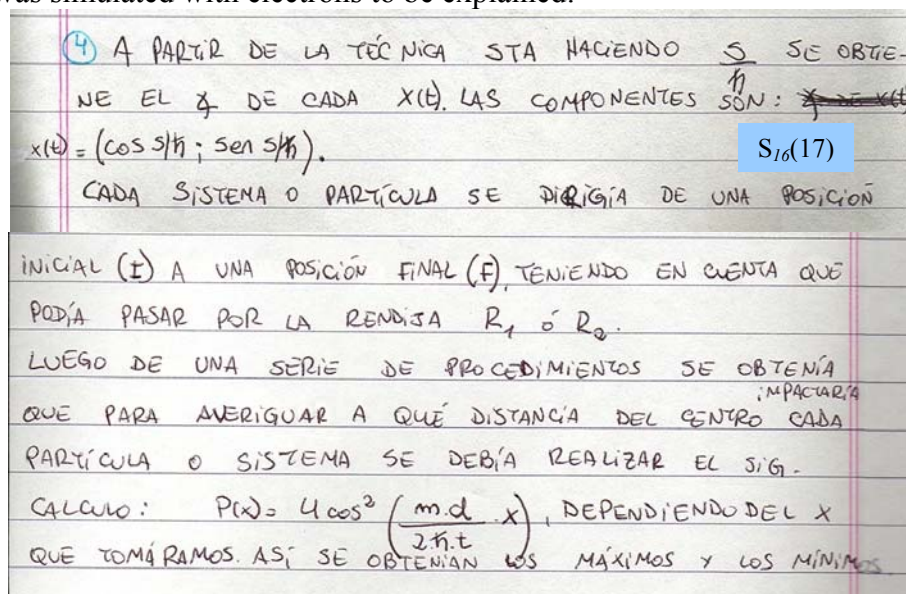 was simulated with electrons to be explained.
④ A PARTIR DE LA TÉCNICA STA HACIENDO S/ħ SE OBTIE-
NE EL ∡ DE CADA X(t). LAS COMPONENTES SON:
x(t) = (cos S/ħ ; sen S/ħ).
S16(17)
CADA SISTEMA O PARTÍCULA SE DIRIGÍA DE UNA POSICIÓN
INICIAL (I) A UNA POSICIÓN FINAL (F), TENIENDO EN CUENTA QUE
PODÍA PASAR POR LA RENDIJA R₁ ó R₂.
LUEGO DE UNA SERIE DE PROCEDIMIENTOS SE OBTENÍA
QUE PARA AVERIGUAR A QUÉ DISTANCIA DEL CENTRO CADA IMPACTARÍA
PARTÍCULA O SISTEMA SE DEBÍA REALIZAR EL SIG.
CALCULO: P(x) = 4 cos² (m.d/2.ħ.t . x), DEPENDIENDO DEL X
QUE TOMÁRAMOS. ASÍ SE OBTENÍAN LOS MÁXIMOS Y LOS MÍNIMOS.